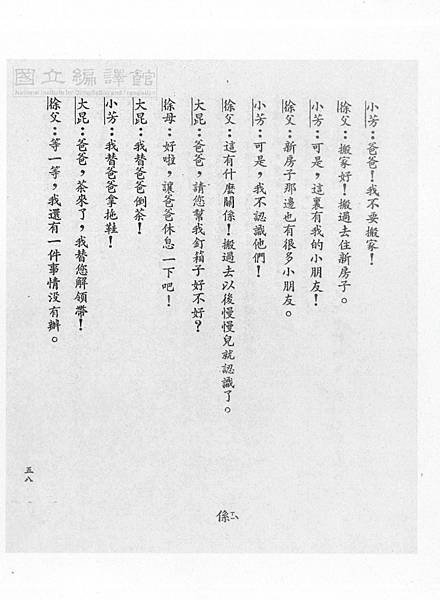 國立編譯館
National Institute for Compilation and Translation
小芳：爸爸！我不要搬家！
徐父：搬家好！搬過去住新房子。
小芳：可是，這裏有我的小朋友！
徐父：新房子那邊也有很多小朋友。
小芳：可是，我不認識他們！
徐父：這有什麼關係！搬過去以後慢慢兒就認識了。
大昆：爸爸，請您幫我釘箱子好不好？
徐母：好啦，讓爸爸休息一下吧！
大昆：我替爸爸倒茶！
小芳：我替爸爸拿拖鞋！
大昆：爸爸，茶來了，我替您解領帶！
徐父：等一等，我還有一件事情沒有辦。
係
五八